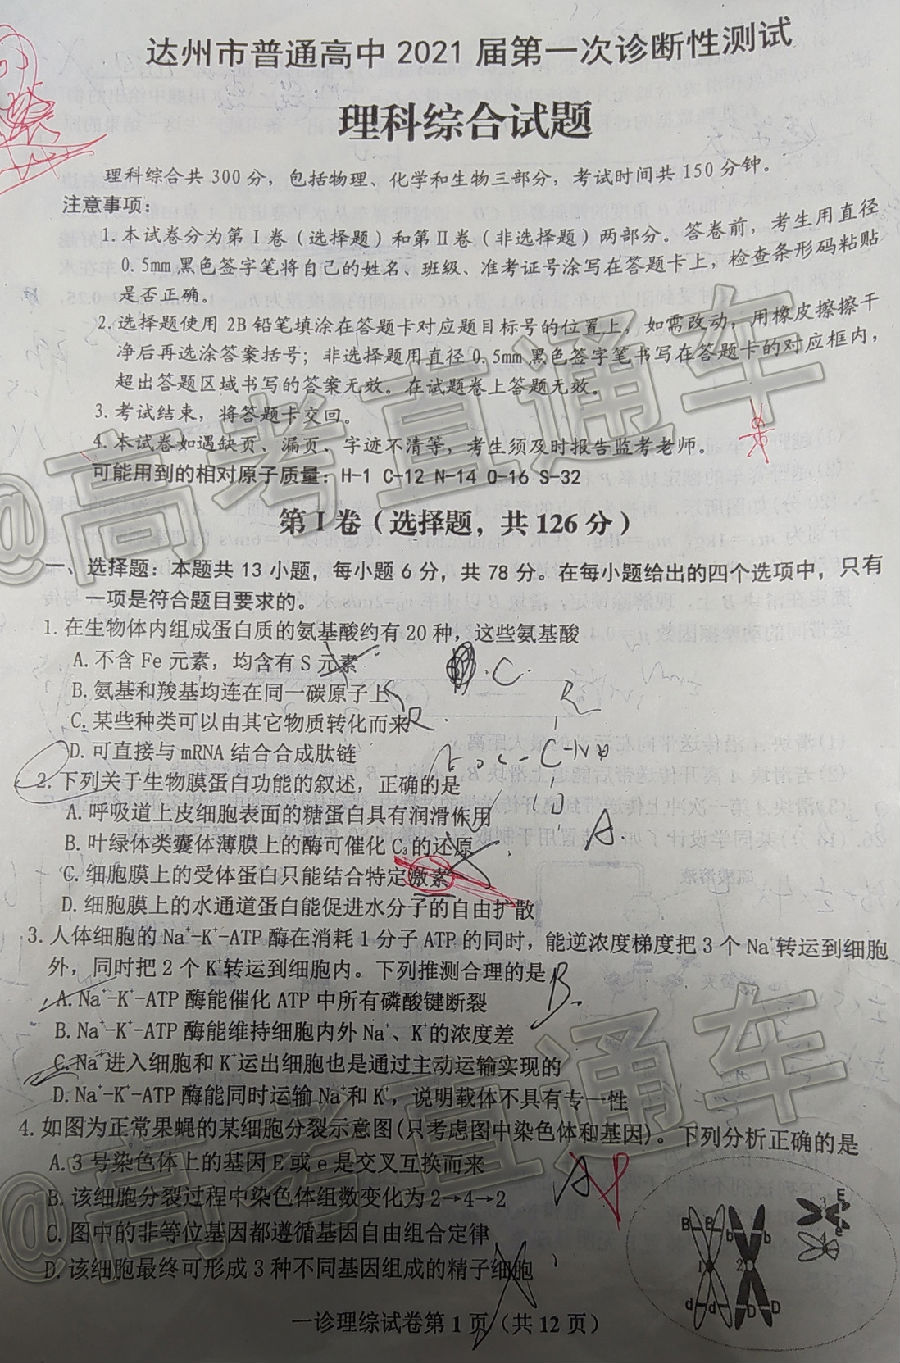 达州市普通高中 2021 届第一次诊断性测试
理科综合试题
理科综合共 300 分，包括物理、化学和生物三部分，考试时间共 150 分钟。
注意事项：
1. 本试卷分为第Ⅰ卷（选择题）和第Ⅱ卷（非选择题）两部分。答卷前，考生用直径
0.5mm 黑色签字笔将自己的姓名、班级、准考证号涂写在答题卡上，检查条形码粘贴
是否正确。
2. 选择题使用 2B 铅笔填涂在答题卡对应题目标号的位置上，如需改动，用橡皮擦擦干
净后再选涂答案括号；非选择题用直径 0.5mm 黑色签字笔书写在答题卡的对应框内，
超出答题区域书写的答案无效。在试题卷上答题无效。
3. 考试结束，将答题卡交回。
4. 本试卷如遇缺页、漏页、字迹不清等，考生须及时报告监考老师。
可能用到的相对原子质量：H-1 C-12 N-14 O-16 S-32
第Ⅰ卷（选择题，共 126 分）
一、选择题：本题共 13 小题，每小题 6 分，共 78 分。在每小题给出的四个选项中，只有
一项是符合题目要求的。
1. 在生物体内组成蛋白质的氨基酸约有 20 种，这些氨基酸
A. 不含 Fe 元素，均含有 S 元素
C
B. 氨基和羧基均连在同一碳原子上
R
C. 某些种类可以由其它物质转化而来
R
D. 可直接与 mRNA 结合合成肽链
2. 下列关于生物膜蛋白功能的叙述，正确的是
A. 呼吸道上皮细胞表面的糖蛋白具有润滑作用
A.
B. 叶绿体类囊体薄膜上的酶可催化 C₃的还原
C. 细胞膜上的受体蛋白只能结合特定激素
D. 细胞膜上的水通道蛋白能促进水分子的自由扩散
3. 人体细胞的 Na⁺-K⁺-ATP 酶在消耗 1 分子 ATP 的同时，能逆浓度梯度把 3 个 Na⁺转运到细胞
外，同时把 2 个 K⁺转运到细胞内。下列推测合理的是
B.
A. Na⁺-K⁺-ATP 酶能催化 ATP 中所有磷酸键断裂
B. Na⁺-K⁺-ATP 酶能维持细胞内外 Na⁺、K⁺的浓度差
C. Na⁺进入细胞和 K⁺运出细胞也是通过主动运输实现的
D. Na⁺-K⁺-ATP 酶能同时运输 Na⁺和 K⁺，说明载体不具有专一性
4. 如图为正常果蝇的某细胞分裂示意图(只考虑图中染色体和基因)。下列分析正确的是
A. 3 号染色体上的基因 E 或 e 是交叉互换而来
A
B. 该细胞分裂过程中染色体组数变化为 2→4→2
C. 图中的非等位基因都遵循基因自由组合定律
D. 该细胞最终可形成 3 种不同基因组成的精子细胞
B B b b
1 2
d d D D
3 E e
一诊理综试卷第 1 页（共 12 页）
@高考直通车
@高考直通车